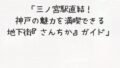 「三ノ宮駅直結！
神戸の魅力を満喫できる
地下街『さんちか』ガイド」